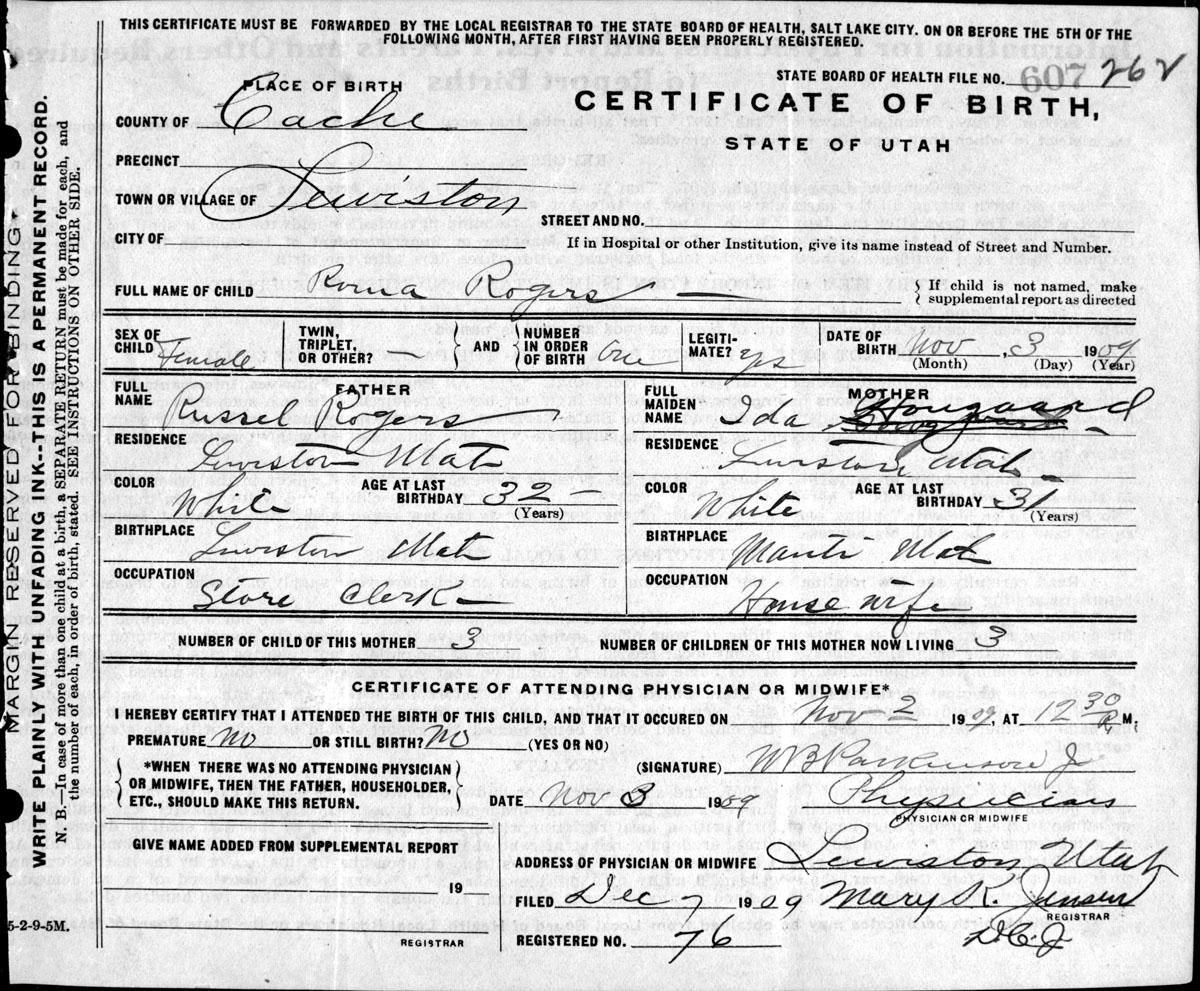 THIS CERTIFICATE MUST BE FORWARDED BY THE LOCAL REGISTRAR TO THE STATE BOARD OF HEALTH, SALT LAKE CITY. ON OR BEFORE THE 5TH OF THE
FOLLOWING MONTH, AFTER FIRST HAVING BEEN PROPERLY REGISTERED.
STATE BOARD OF HEALTH FILE NO. 607 262
PLACE OF BIRTH
CERTIFICATE OF BIRTH,
COUNTY OF Cache
STATE OF UTAH
PRECINCT
TOWN OR VILLAGE OF Lewiston
STREET AND NO.
CITY OF
If in Hospital or other Institution, give its name instead of Street and Number.
FULL NAME OF CHILD Roma Rogers
If child is not named, make
supplemental report as directed
SEX OF CHILD Female
TWIN, TRIPLET, OR OTHER?
AND
NUMBER IN ORDER OF BIRTH One
LEGITIMATE? yes
DATE OF BIRTH Nov, 3 1909
(Month) (Day) (Year)
FATHER
FULL NAME Russel Rogers
RESIDENCE
Lewiston Utah
COLOR White
AGE AT LAST BIRTHDAY 32
(Years)
BIRTHPLACE
Lewiston Utah
OCCUPATION
Store Clerk
MOTHER
FULL MAIDEN NAME Ida Hougaard
RESIDENCE
Lewiston, Utah
COLOR White
AGE AT LAST BIRTHDAY 31
(Years)
BIRTHPLACE
Manti Utah
OCCUPATION
House wife
NUMBER OF CHILD OF THIS MOTHER 3
NUMBER OF CHILDREN OF THIS MOTHER NOW LIVING 3
CERTIFICATE OF ATTENDING PHYSICIAN OR MIDWIFE*
I HEREBY CERTIFY THAT I ATTENDED THE BIRTH OF THIS CHILD, AND THAT IT OCCURED ON Nov 3 1909, AT 12 30 P M,
PREMATURE No OR STILL BIRTH? No (YES OR NO)
*WHEN THERE WAS NO ATTENDING PHYSICIAN
OR MIDWIFE, THEN THE FATHER, HOUSEHOLDER,
ETC., SHOULD MAKE THIS RETURN.
(SIGNATURE) W B Parkinson Jr
DATE Nov 3 1909 Physician
PHYSICIAN OR MIDWIFE
GIVE NAME ADDED FROM SUPPLEMENTAL REPORT
19
REGISTRAR
ADDRESS OF PHYSICIAN OR MIDWIFE Lewiston Utah
FILED Dec 7 1909 Mary K. Jensen
REGISTRAR
REGISTERED NO. 76
MARGIN RESERVED FOR BINDING
WRITE PLAINLY WITH UNFADING INK--THIS IS A PERMANENT RECORD.
N. B.—In case of more than one child at a birth, a SEPARATE RETURN must be made for each, and
the number of each, in order of birth, stated. SEE INSTRUCTIONS ON OTHER SIDE.
5-2-9-5M.